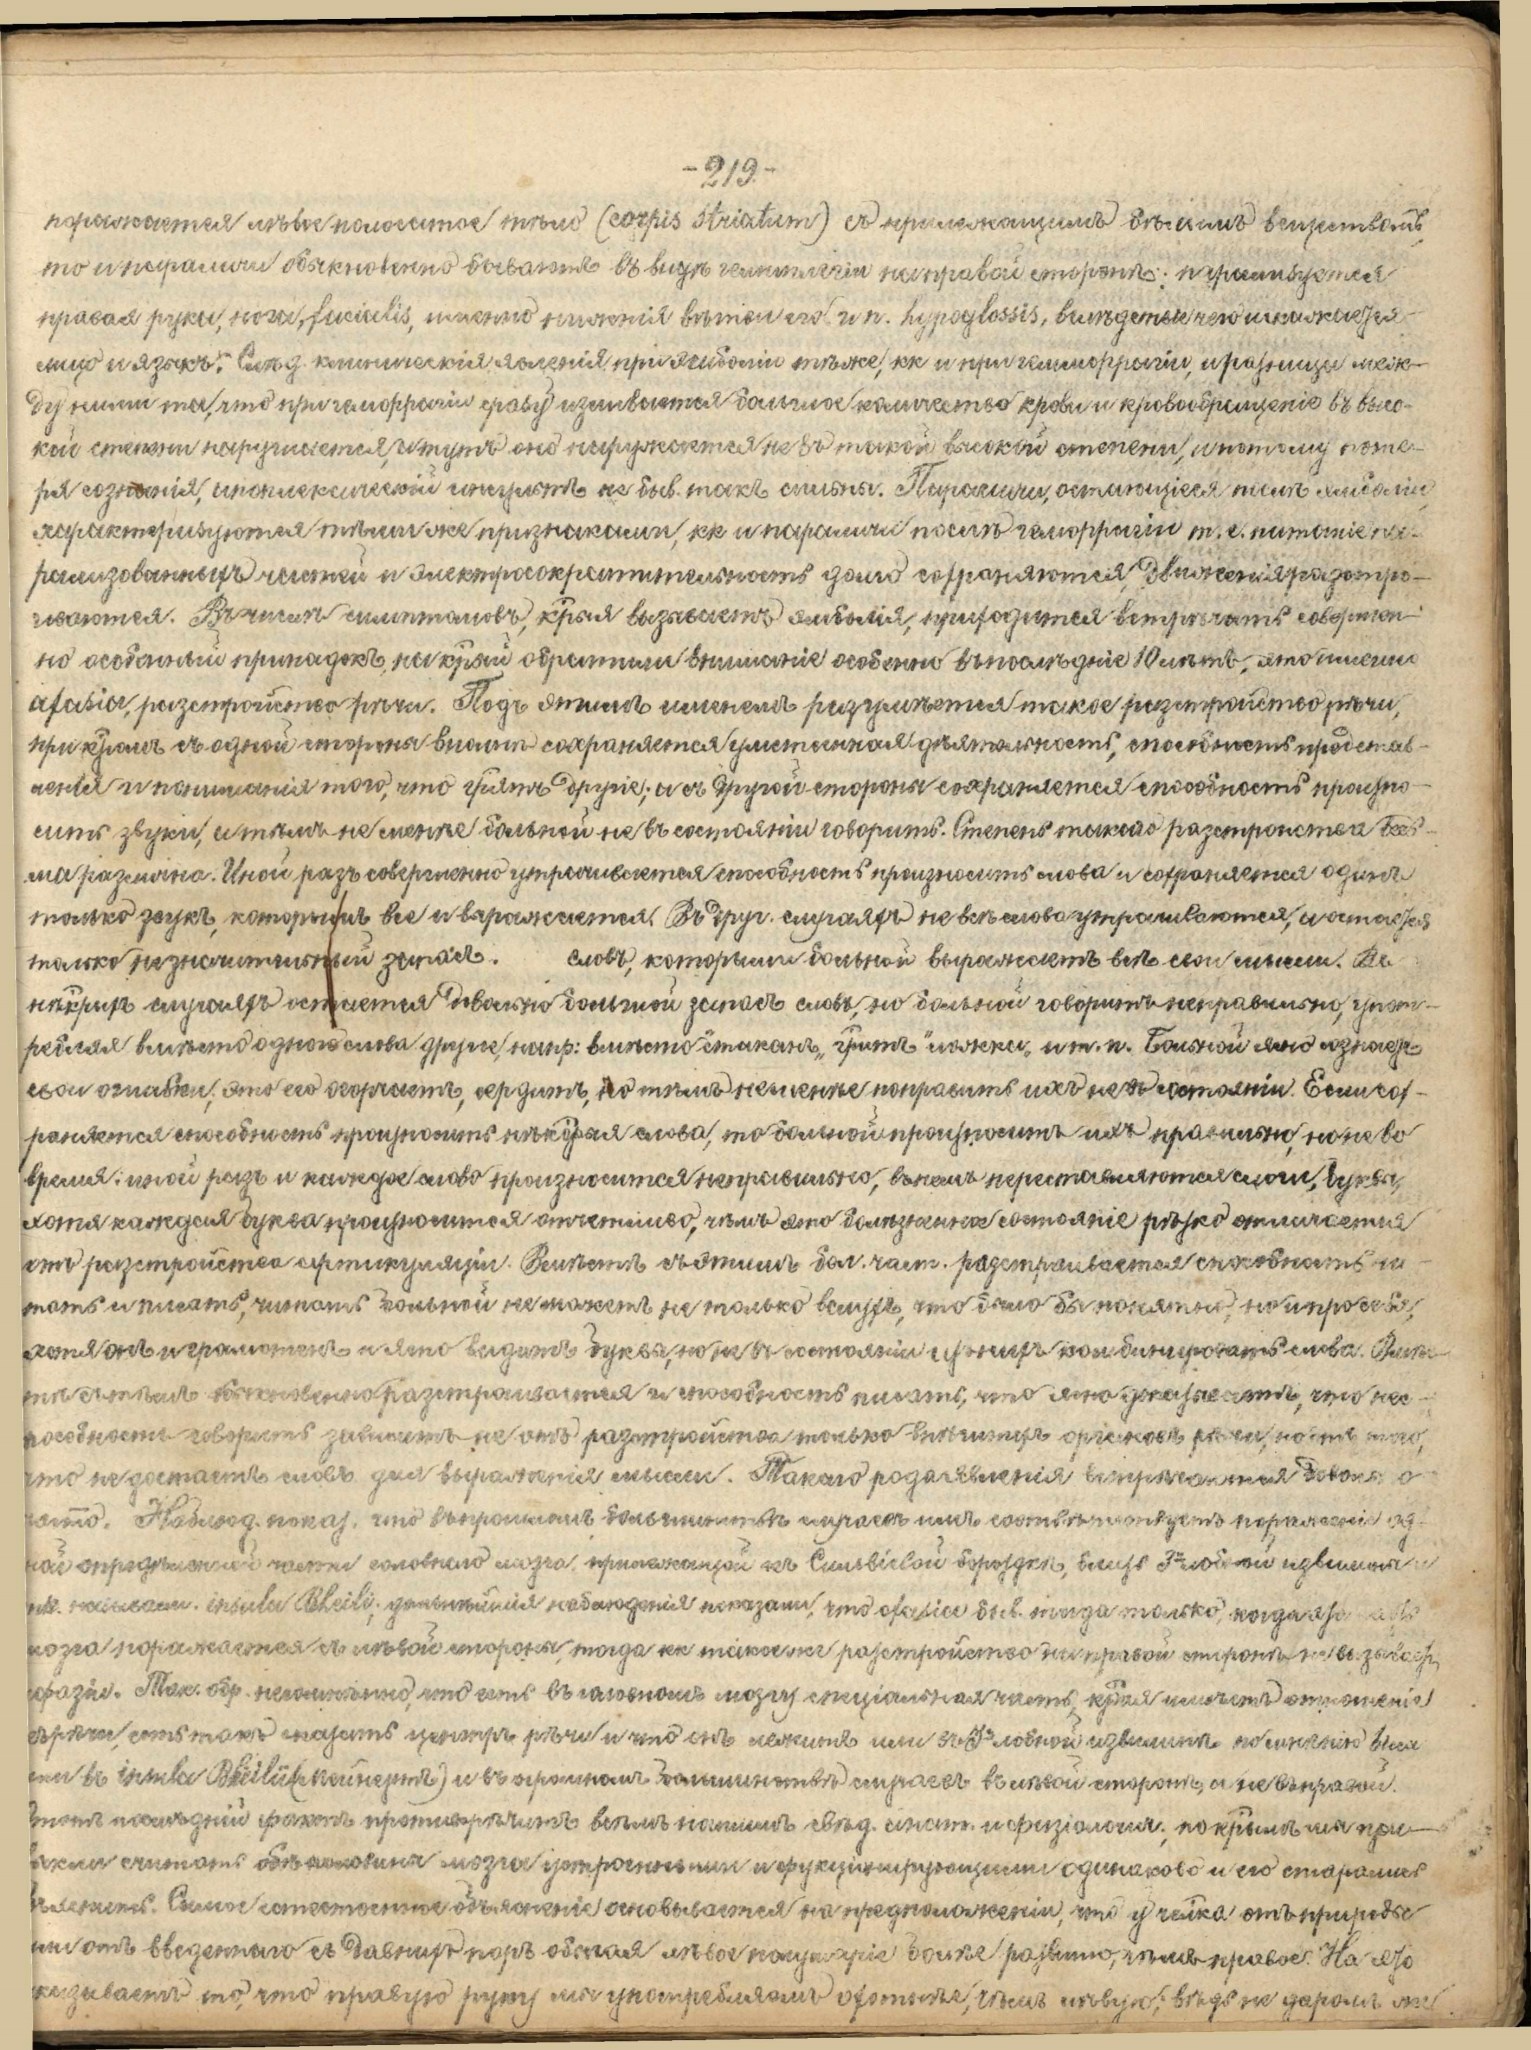 -219-
поражается лѣвое полосатое тѣло (corpis striatum) съ прилежащимъ бѣлымъ веществомъ,
то и параличи обыкновенно бываютъ въ видѣ гемиплегіи на правой сторонѣ: парализуется
правая рука, нога, facialis, именно нижнія вѣтви его и n. hypoglossis, вслѣдствіе чего искажается
лицо и языкъ. Слѣд. клиническія явленія при эмболіи тѣ же, кк и при геморрагіи, и разница меж-
ду ними та, что при геморрагіи сразу изливается большое количество крови и кровообращеніе въ высо-
кой степени нарушается, а тутъ оно нарушается не въ такой высокой степени, и потому поте-
ря сознанія, апоплексическій инсультъ не быв. такъ сильны. Параличи, остающіеся послѣ эмболіи,
характеризуются тѣми же признаками, кк и параличи послѣ геморрагіи т. е. питаніе па-
рализованныхъ частей и электросократительность долго сохраняются, движенія разстро-
иваются. Въ числѣ симптомовъ, крыя вызываетъ эмболія, приходится встрѣчать совершен-
но особенный припадокъ, на крый обратили вниманіе особенно въ послѣдніе 10 лѣтъ, это именно
afasia, разстройство рѣчи. Подъ этимъ именемъ разумѣется такое разстройство рѣчи,
при кромъ съ одной стороны вполнѣ сохраняется умственная дѣятельность, способность представ-
ленія и пониманія того, что грятъ другіе; а съ другой стороны сохраняется способность произно-
сить звуки, и тѣмъ не менѣе больной не въ состояніи говорить. Степень такого разстройства весь-
ма различна. Иной разъ совершенно утрачивается способность произносить слова и сохраняется одинъ
только звукъ, которымъ все и выражается. Въ друг. случаяхъ не всѣ слова утрачиваются, а остается
только незначительный запасъ. словъ, которыми больной выражаетъ всѣ свои мысли. Въ
нѣкрыхъ случаяхъ остается довольно большой запасъ словъ, но больной говоритъ неправильно, упот-
ребляя вмѣсто одного слова другое, напр: вмѣсто "стаканъ" гритъ "ложка" и т. п. Больной ясно сознаетъ
свои ошибки, это его огорчаетъ, сердитъ, но тѣмъ не менѣе поправить ихъ не въ состояніи. Если сох-
раняется способность произносить нѣкорыя слова, то больной произноситъ ихъ правильно, но не во
время: иной разъ и каждое слово произносится неправильно, въ немъ переставляются слоги, буквы,
хотя каждая буква произносится отчетливо, чѣмъ это болѣзненное состояніе рѣзко отличается
отъ разстройства артикуляціи. Вмѣстѣ съ этимъ бол. част. разстраивается способность чи-
тать и писать, читать больной не можетъ не только вслухъ, что было бы понятно, но и про себя,
хотя онъ и грамотенъ и ясно видитъ буквы, но не въ состояніи изъ нихъ комбинировать слова. Вмѣс-
тѣ съ тѣмъ обыкновенно разстраивается и способность писать, что ясно указываетъ, что нес-
пособность говорить зависитъ не отъ разстройства только внѣшнихъ органовъ рѣчи, но отъ того,
что недостаетъ словъ для выраженія мысли. Такого рода явленія встрѣчаются довольно
часто. Наблюд. показ. что въ громадномъ большинствѣ случаевъ имъ соотвѣтствуетъ пораженіе од-
ной опредѣленной части головного мозга, прилежащей къ Сильвіевой бороздкѣ, близъ 3й лобной извилины и
insula Rheili; дальнѣйшія наблюденія показали, что afasia быв. тогда только, когда эта часть
мозга поражается съ лѣвой стороны, тогда кк такое же разстройство на правой сторонѣ не вызываетъ
афазіи. Так. обр. несомнѣнно что есть въ головномъ мозгу спеціальная часть, края имѣетъ отношеніе
къ рѣчи, есть такъ сказать центръ рѣчи и что онъ лежитъ или въ 3й лобной извилинѣ по мнѣнію
или въ insula Rheilii (Мейнертъ) и въ огромномъ большинствѣ случаевъ въ лѣвой сторонѣ, а не въ правой.
Этотъ послѣдній фактъ противорѣчитъ всѣмъ нашимъ свѣд. анат. и физіологич., по крымъ мы при-
выкли считать обѣ половины мозга устроенными и функціонирующими одинаково и его старались
объяснить. Самое естественное объясненіе основывается на предположеніи, что у челка отъ природы
или отъ введеннаго съ давнихъ поръ обычая лѣвое полушаріе болѣе развито, чѣмъ правое. На это
указываетъ то, что правую руку мы употребляемъ охотнѣе, чѣмъ лѣвую; вѣдь не даромъ же